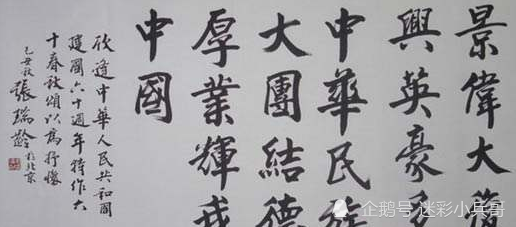 景偉大復
興英豪多
中華民族
大團結德
厚業輝我
中國
欣逢中華人民共和國
建國六十週年特作六
十春秋頌以為抒懷
己丑秋 張瑞齡 於北京
企鹅号 迷彩小兵哥